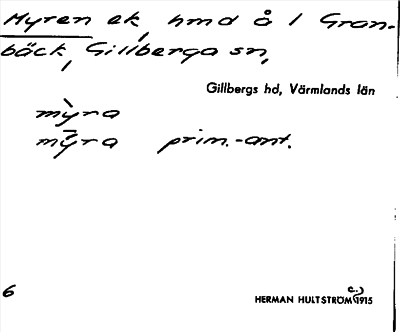 Myren ek, hmd å 1 Gran-
bäck, Gillberga sn,
Gillbergs hd, Värmlands län
mỳra
mȳ̀ra prim.-ant.
6
c.)
HERMAN HULTSTRÖM 1915